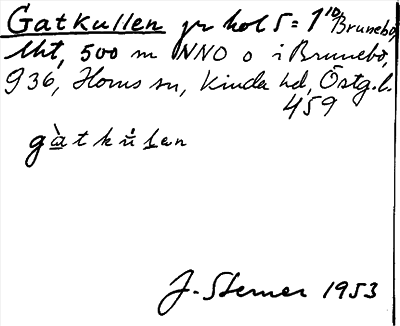 Gatkullen gr hol 5= 1 10 Brunebo,
lht, 500 m NNO o i Brunebo,
936, Horns sn, Kinda hd, Östg. l.
459
gàtkùlen
J. Sterner 1953